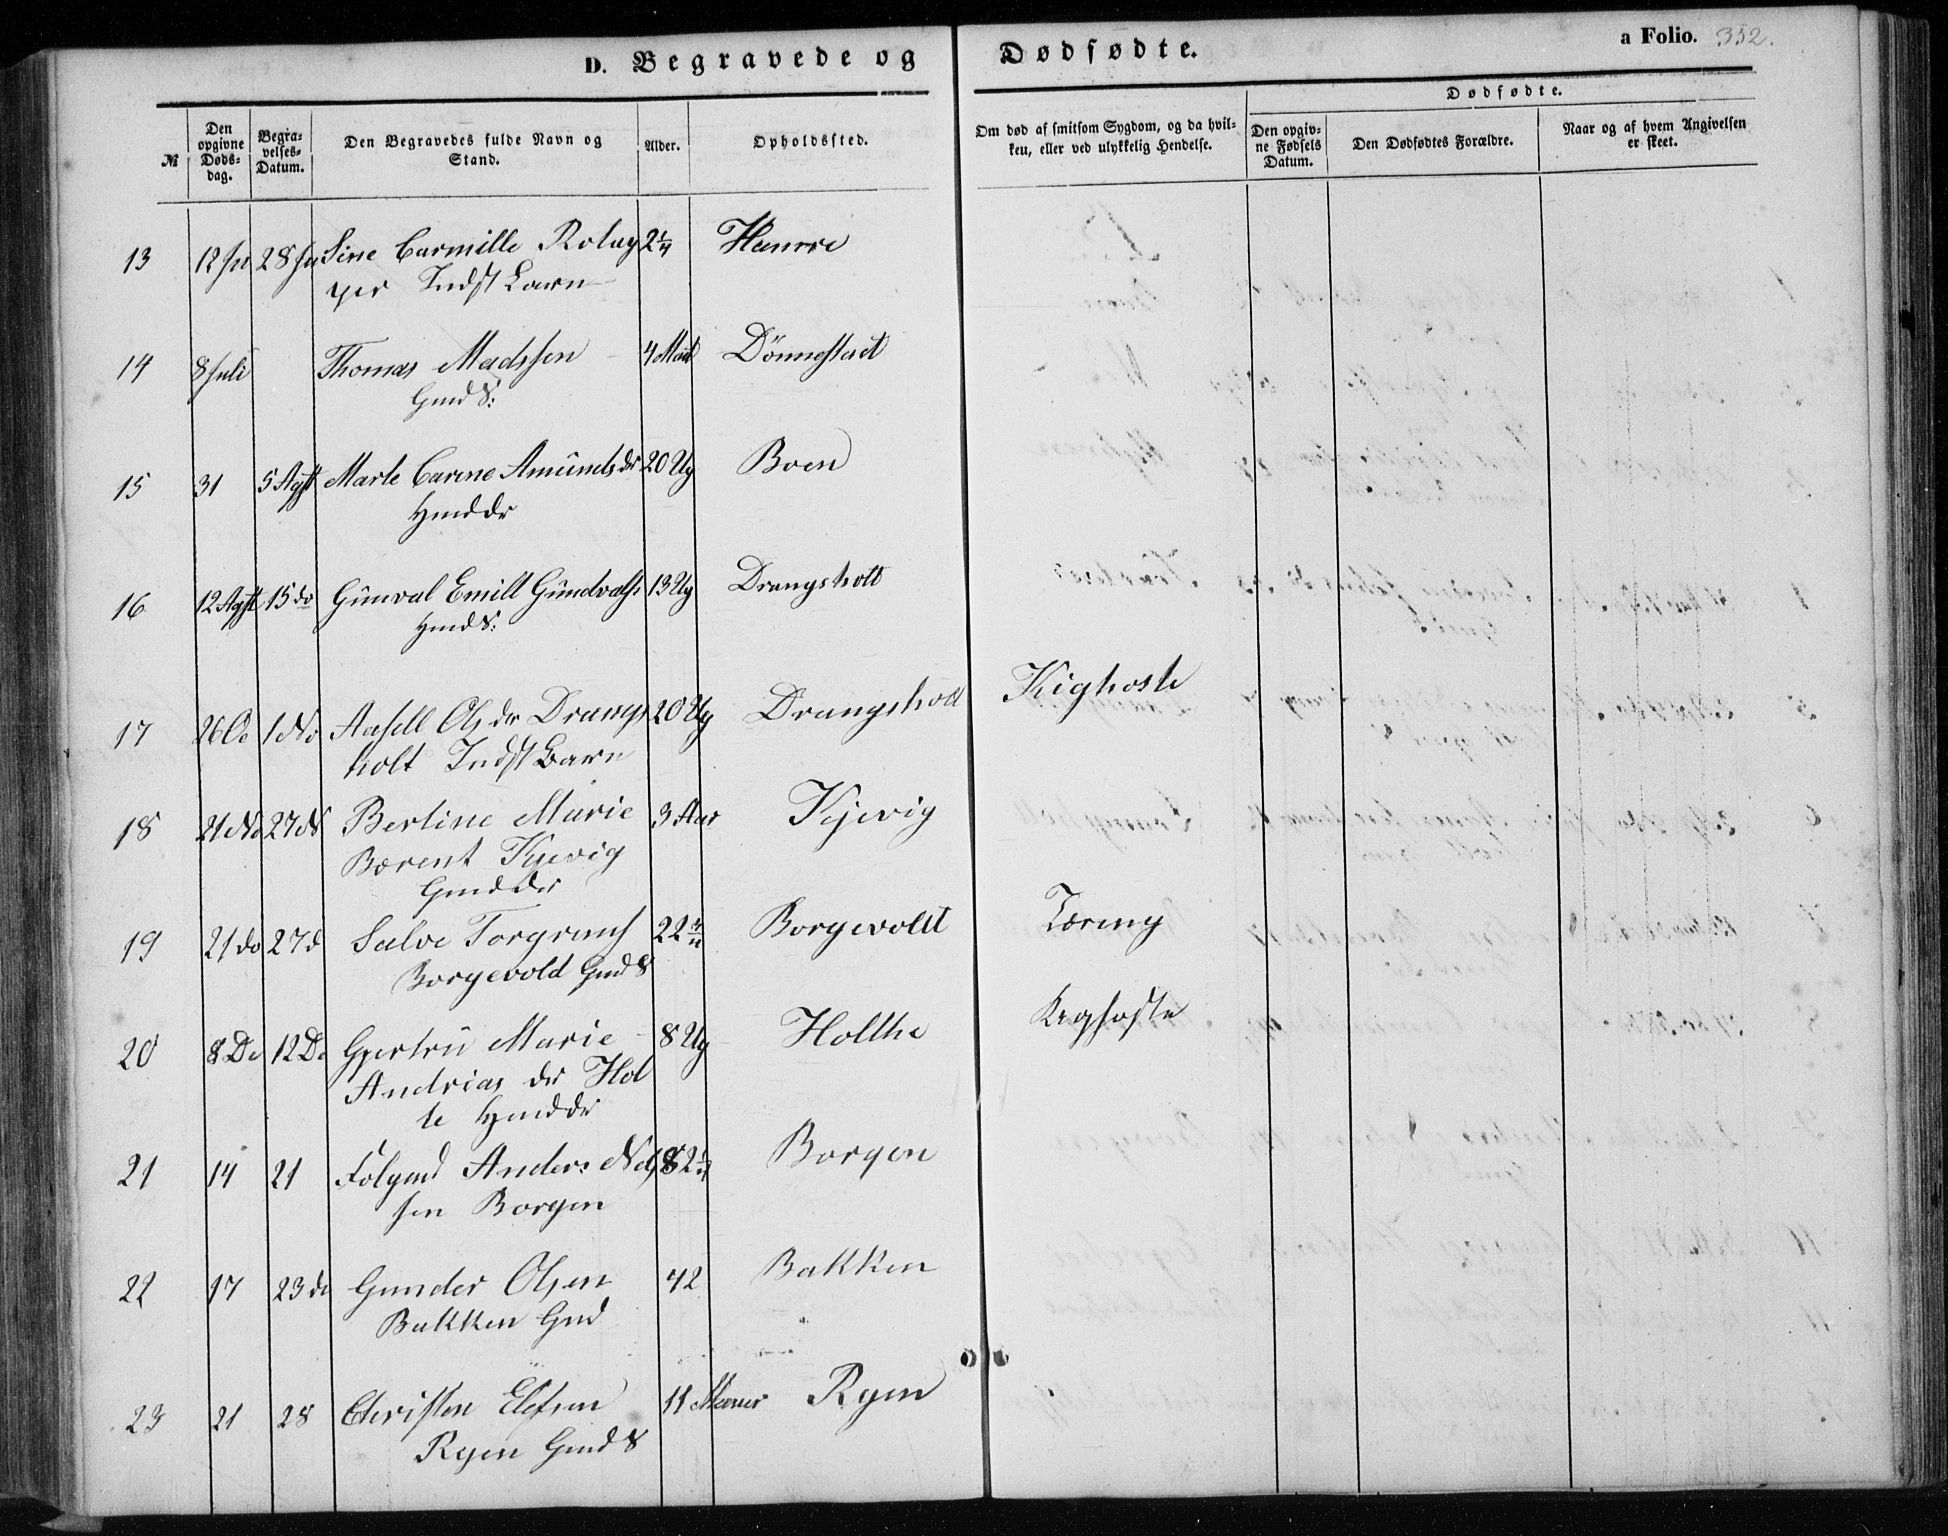 D. Begravede og Dødfødte. a Folio. 352.
Dødfødte.
№ Den opgivne Døds-dag. Begra-velses-Datum. Den Begravedes fulde Navn og Stand. Alder. Opholdssted. Om død af smitsom Sygdom, og da hvil-ken, eller ved ulykkelig Hendelse. Den opgiv-ne Fødsels Datum. Den Dødfødtes Forældre. Naar og af hvem Angivelsen er skeet.
13 12 28 Sine Carmille 2¼ Hamre
Indst Barn
14 8 Juli Thomas Madssen 4 Dönnestad
Gmd S:
15 31 5 Agst Marte Carine Amunds dr 20 Ug Boen
Hmd dr
16 12 Agst 15 do Gunval Emill Gundvals 13 Ug Drangsholt
Hmd S:
17 26 Oc 1 No Aasell Ols dr Drangs 20 Ug Drangsholt Kighoste
holt Indst Barn
18 21 No 27 N Bertine Marie 3 Aar Kjevig
Bærent Kjevig
Gmd dr
19 21 do 27 d Salve Torgrims 22 Borgevold Tæring
Borgevold Gmd S
20 8 De 12 De Gjertru Marie 8 Ug Holthe Kighoste
Andrias dr Hol
te Hmd dr
21 14 21 Folgmd Anders Nels 82 Borgen
sen Borgen
22 17 23 do Gunder Olsen 42 Bakken
Bakken Gmd
23 21 28 Christen Elefsen 11 Ryen
Ryen Gmd S